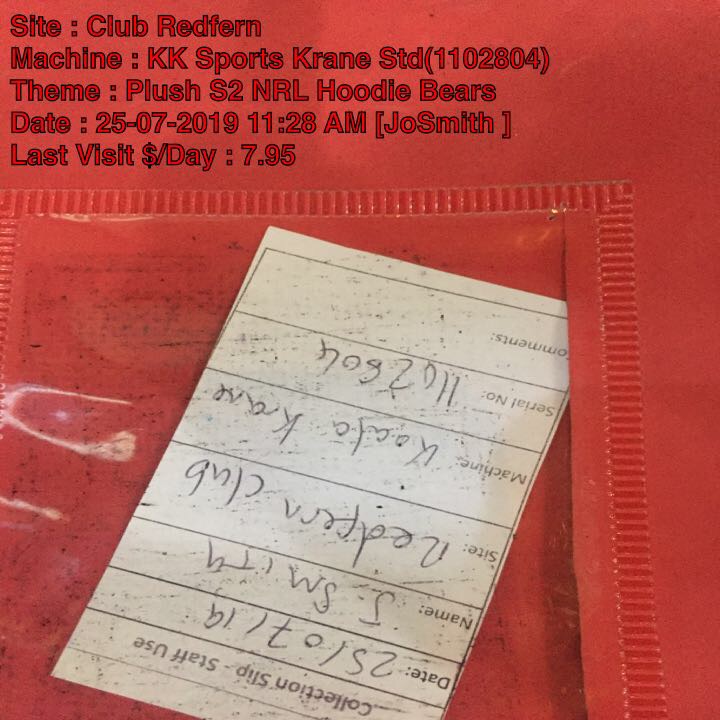 Site : Club Redfern
Machine : KK Sports Krane Std(1102804)
Theme : Plush S2 NRL Hoodie Bears
Date : 25-07-2019 11:28 AM [JoSmith ]
Last Visit $/Day : 7.95
Collection Slip - Staff Use
Date: 25/07/19
Name: J. SMITH
Site: Redfern Club
Machine: Koala Krane
Serial No: 1102804
Comments: